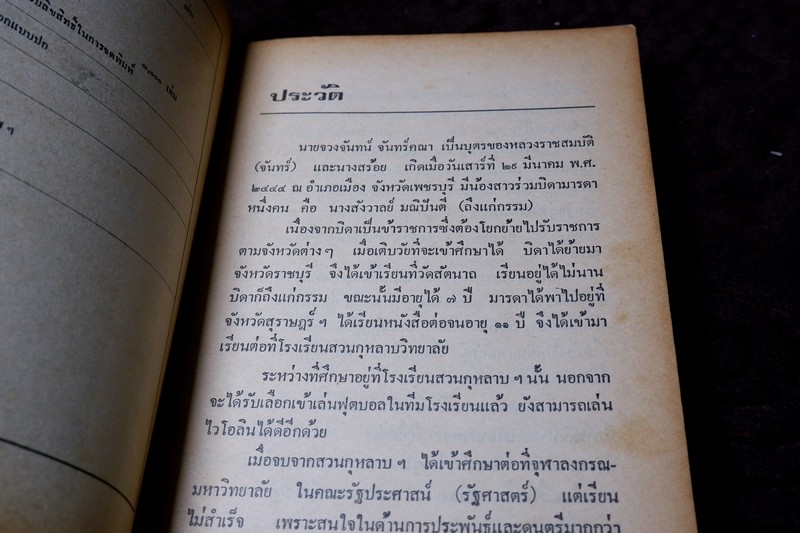 ลิขสิทธิ์ในการจดพิมพ์
ประวัติ
นายจวงจันทน์ จันทร์คณา เป็นบุตรของหลวงราชสมบัติ
(จันทร์) และนางสร้อย เกิดเมื่อวันเสาร์ที่ ๒๙ มีนาคม พ.ศ.
๒๔๔๔ ณ อำเภอเมือง จังหวัดเพชรบุรี มีน้องสาวร่วมบิดามารดา
หนึ่งคน คือ นางสังวาลย์ มณิปันตี (ถึงแก่กรรม)
เนื่องจากบิดาเป็นข้าราชการซึ่งต้องโยกย้ายไปรับราชการ
ตามจังหวัดต่างๆ เมื่อเติบวัยที่จะเข้าศึกษาได้ บิดาได้ย้ายมา
จังหวัดราชบุรี จึงได้เข้าเรียนที่วัดสัตนาถ เรียนอยู่ได้ไม่นาน
บิดาก็ถึงแก่กรรม ขณะนั้นมีอายุได้ ๗ ปี มารดาได้พาไปอยู่ที่
จังหวัดสุราษฎร์ฯ ได้เรียนหนังสือต่อจนอายุ ๑๑ ปี จึงได้เข้ามา
เรียนต่อที่โรงเรียนสวนกุหลาบวิทยาลัย
ระหว่างที่ศึกษาอยู่ที่โรงเรียนสวนกุหลาบ ฯ นั้น นอกจาก
จะได้รับเลือกเข้าเล่นฟุตบอลในทีมโรงเรียนแล้ว ยังสามารถเล่น
ไวโอลินได้ดีอีกด้วย
เมื่อจบจากสวนกุหลาบ ฯ ได้เข้าศึกษาต่อที่จุฬาลงกรณ-
มหาวิทยาลัย ในคณะรัฐประศาสน์ (รัฐศาสตร์) แต่เรียน
ไม่สำเร็จ เพราะสนใจในด้านการประพันธ์และดนตรีมากกว่า